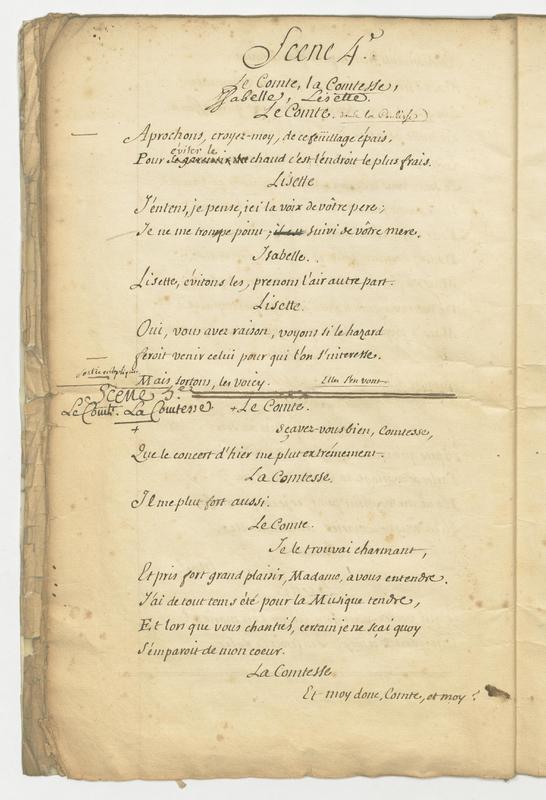 Scene 4.^e
Le Comte, la Comtesse,
Isabelle, Lisette.
Le Comte. dans la Coulisse)
Aprochons, croyez-moy, de ce feüillage épais,
éviter le
Pour chaud c'est l'endroit le plus frais.
Lisette
J'entens, je pense, ici la voix de vôtre pere;
Je ne me trompe point; il est suivi de vôtre mere.
Isabelle.
Lisette, évitons les, prenons l'air autre part.
Lisette.
Oui, vous avez raison, voyons si le hazard
feroit venir celui pour qui l'on s'interesse.
Mais, sortons, les voicy. Elles s'en vont.
Scene 5.^e
Le Comte. La Comtesse. + Le Comte.
+
Sçavez-vous bien, Comtesse,
Que le concert d'hier me plut extrémement.
La Comtesse.
Il me plut fort aussi.
Le Comte.
Je le trouvai charmant,
Et pris fort grand plaisir, Madame, a vous entendre.
J'ai de tout tems été pour la Musique tendre,
Et lors que vous chantiés, certain je ne sçai quoy
S'emparoit de mon coeur.
La Comtesse.
Et moy donc, Comte, et moy?